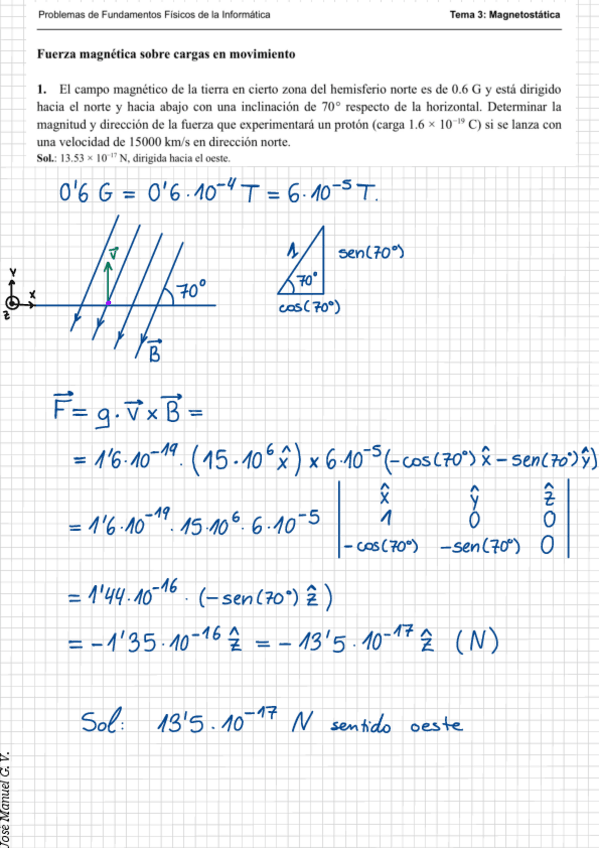 Problemas de Fundamentos Físicos de la Informática Tema 3: Magnetostática
Fuerza magnética sobre cargas en movimiento
1. El campo magnético de la tierra en cierto zona del hemisferio norte es de 0.6 G y está dirigido
hacia el norte y hacia abajo con una inclinación de 70° respecto de la horizontal. Determinar la
magnitud y dirección de la fuerza que experimentará un protón (carga 1.6 × 10⁻¹⁹ C) si se lanza con
una velocidad de 15000 km/s en dirección norte.
Sol.: 13.53 × 10⁻¹⁷ N, dirigida hacia el oeste.
0'6 G = 0'6 · 10⁻⁴ T = 6 · 10⁻⁵ T.
Y
X
Z
v⃗
70°
B⃗
1
70°
sen(70°)
cos(70°)
F⃗ = q · v⃗ × B⃗ =
= 1'6·10⁻¹⁹ · (15·10⁶ x̂) × 6·10⁻⁵ (-cos(70°) x̂ - sen(70°) ŷ)
= 1'6·10⁻¹⁹ · 15·10⁶ · 6·10⁻⁵ | x̂ ŷ ẑ
1 0 0
-cos(70°) -sen(70°) 0 |
= 1'44·10⁻¹⁶ · (-sen(70°) ẑ)
= -1'35·10⁻¹⁶ ẑ = -13'5·10⁻¹⁷ ẑ (N)
Sol: 13'5·10⁻¹⁷ N sentido oeste
José Manuel G. V.